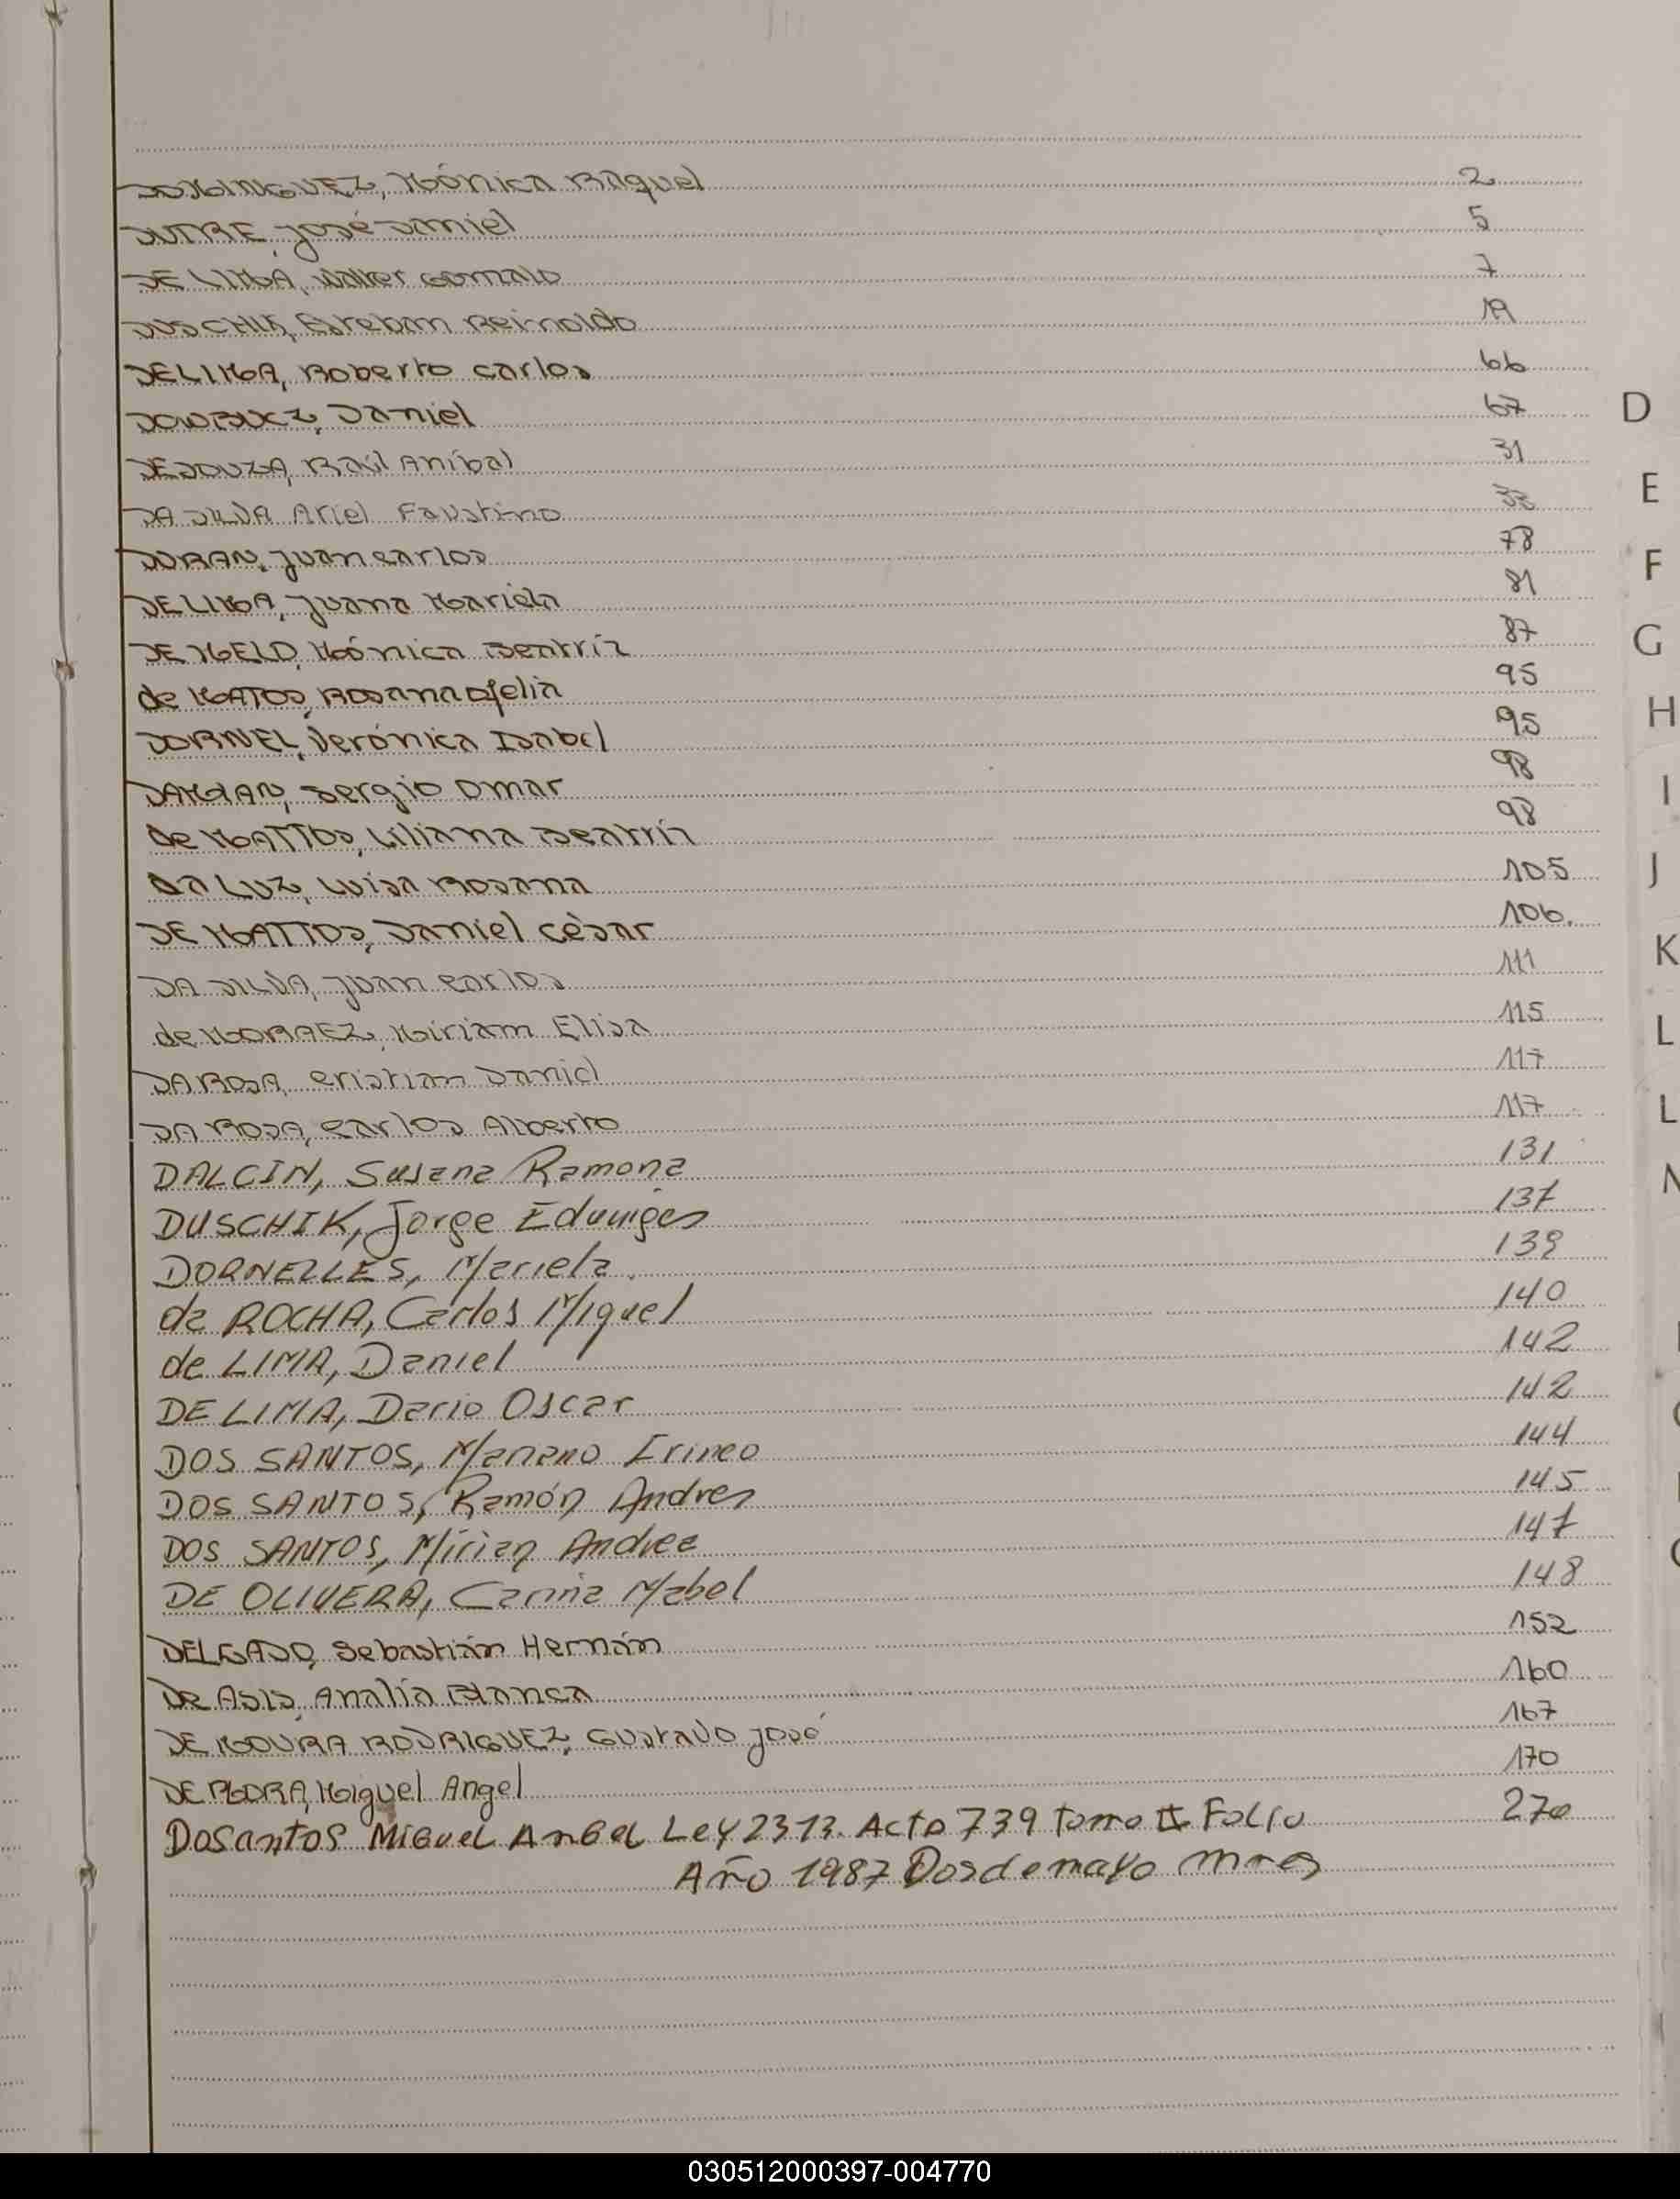 DOMINGUEZ, Mónica Raquel 2
DUTRE, José Daniel 5
DE LIMA, Walter Gornaldo 7
DUSCHIK, Esteban Reinoldo 19
DELIMA, Roberto Carlos 66
Daniel 67
DESOUZA, Raúl Aníbal 31
DA SILVA Ariel Faustino 33
DORAN, Juan Carlos 78
DELIMA, Juana Mariela 81
DE MELO, Mónica Beatríz 87
de MATOS, Rosana Ofelia 95
DORNEL, Verónica Isabel 95
DAMIAN, Sergio Omar 98
de MATTOS, Liliana Beatríz 98
Da LUZ, Luisa Rosana 105
DE MATTOS, Daniel Cèsar 106.
DA SILVA, Juan Carlos 111
de MORAEZ, Miriam Elisa 115
DA ROSA, Cristian Daniel 117
DA ROSA, Carlos Alberto 117
DALCIN, Susana Ramona 131
DUSCHIK, Jorge Eduviges 137
DORNELLES, Mariela 139
da ROCHA, Carlos Miguel 140
de LIMA, Daniel 142
DE LIMA, Dario Oscar 142
DOS SANTOS, Mariano Irineo 144
DOS SANTOS, Ramón Andres 145
DOS SANTOS, Mirian Andrea 147
DE OLIVERA, Carina Mabel 148
DELGADO, Sebastián Hernán 152
De ASIS, Analía Blanca 160
DE MOURA RODRIGUEZ, Gustavo José 167
DE MORA, Miguel Angel 170
Dosantos Miguel Angel Ley 2313. Acta 739 tomo II Folio 270
Año 1987 Dos de mayo Mnes
D
E
F
G
H
I
J
K
L
L
N
030512000397-004770